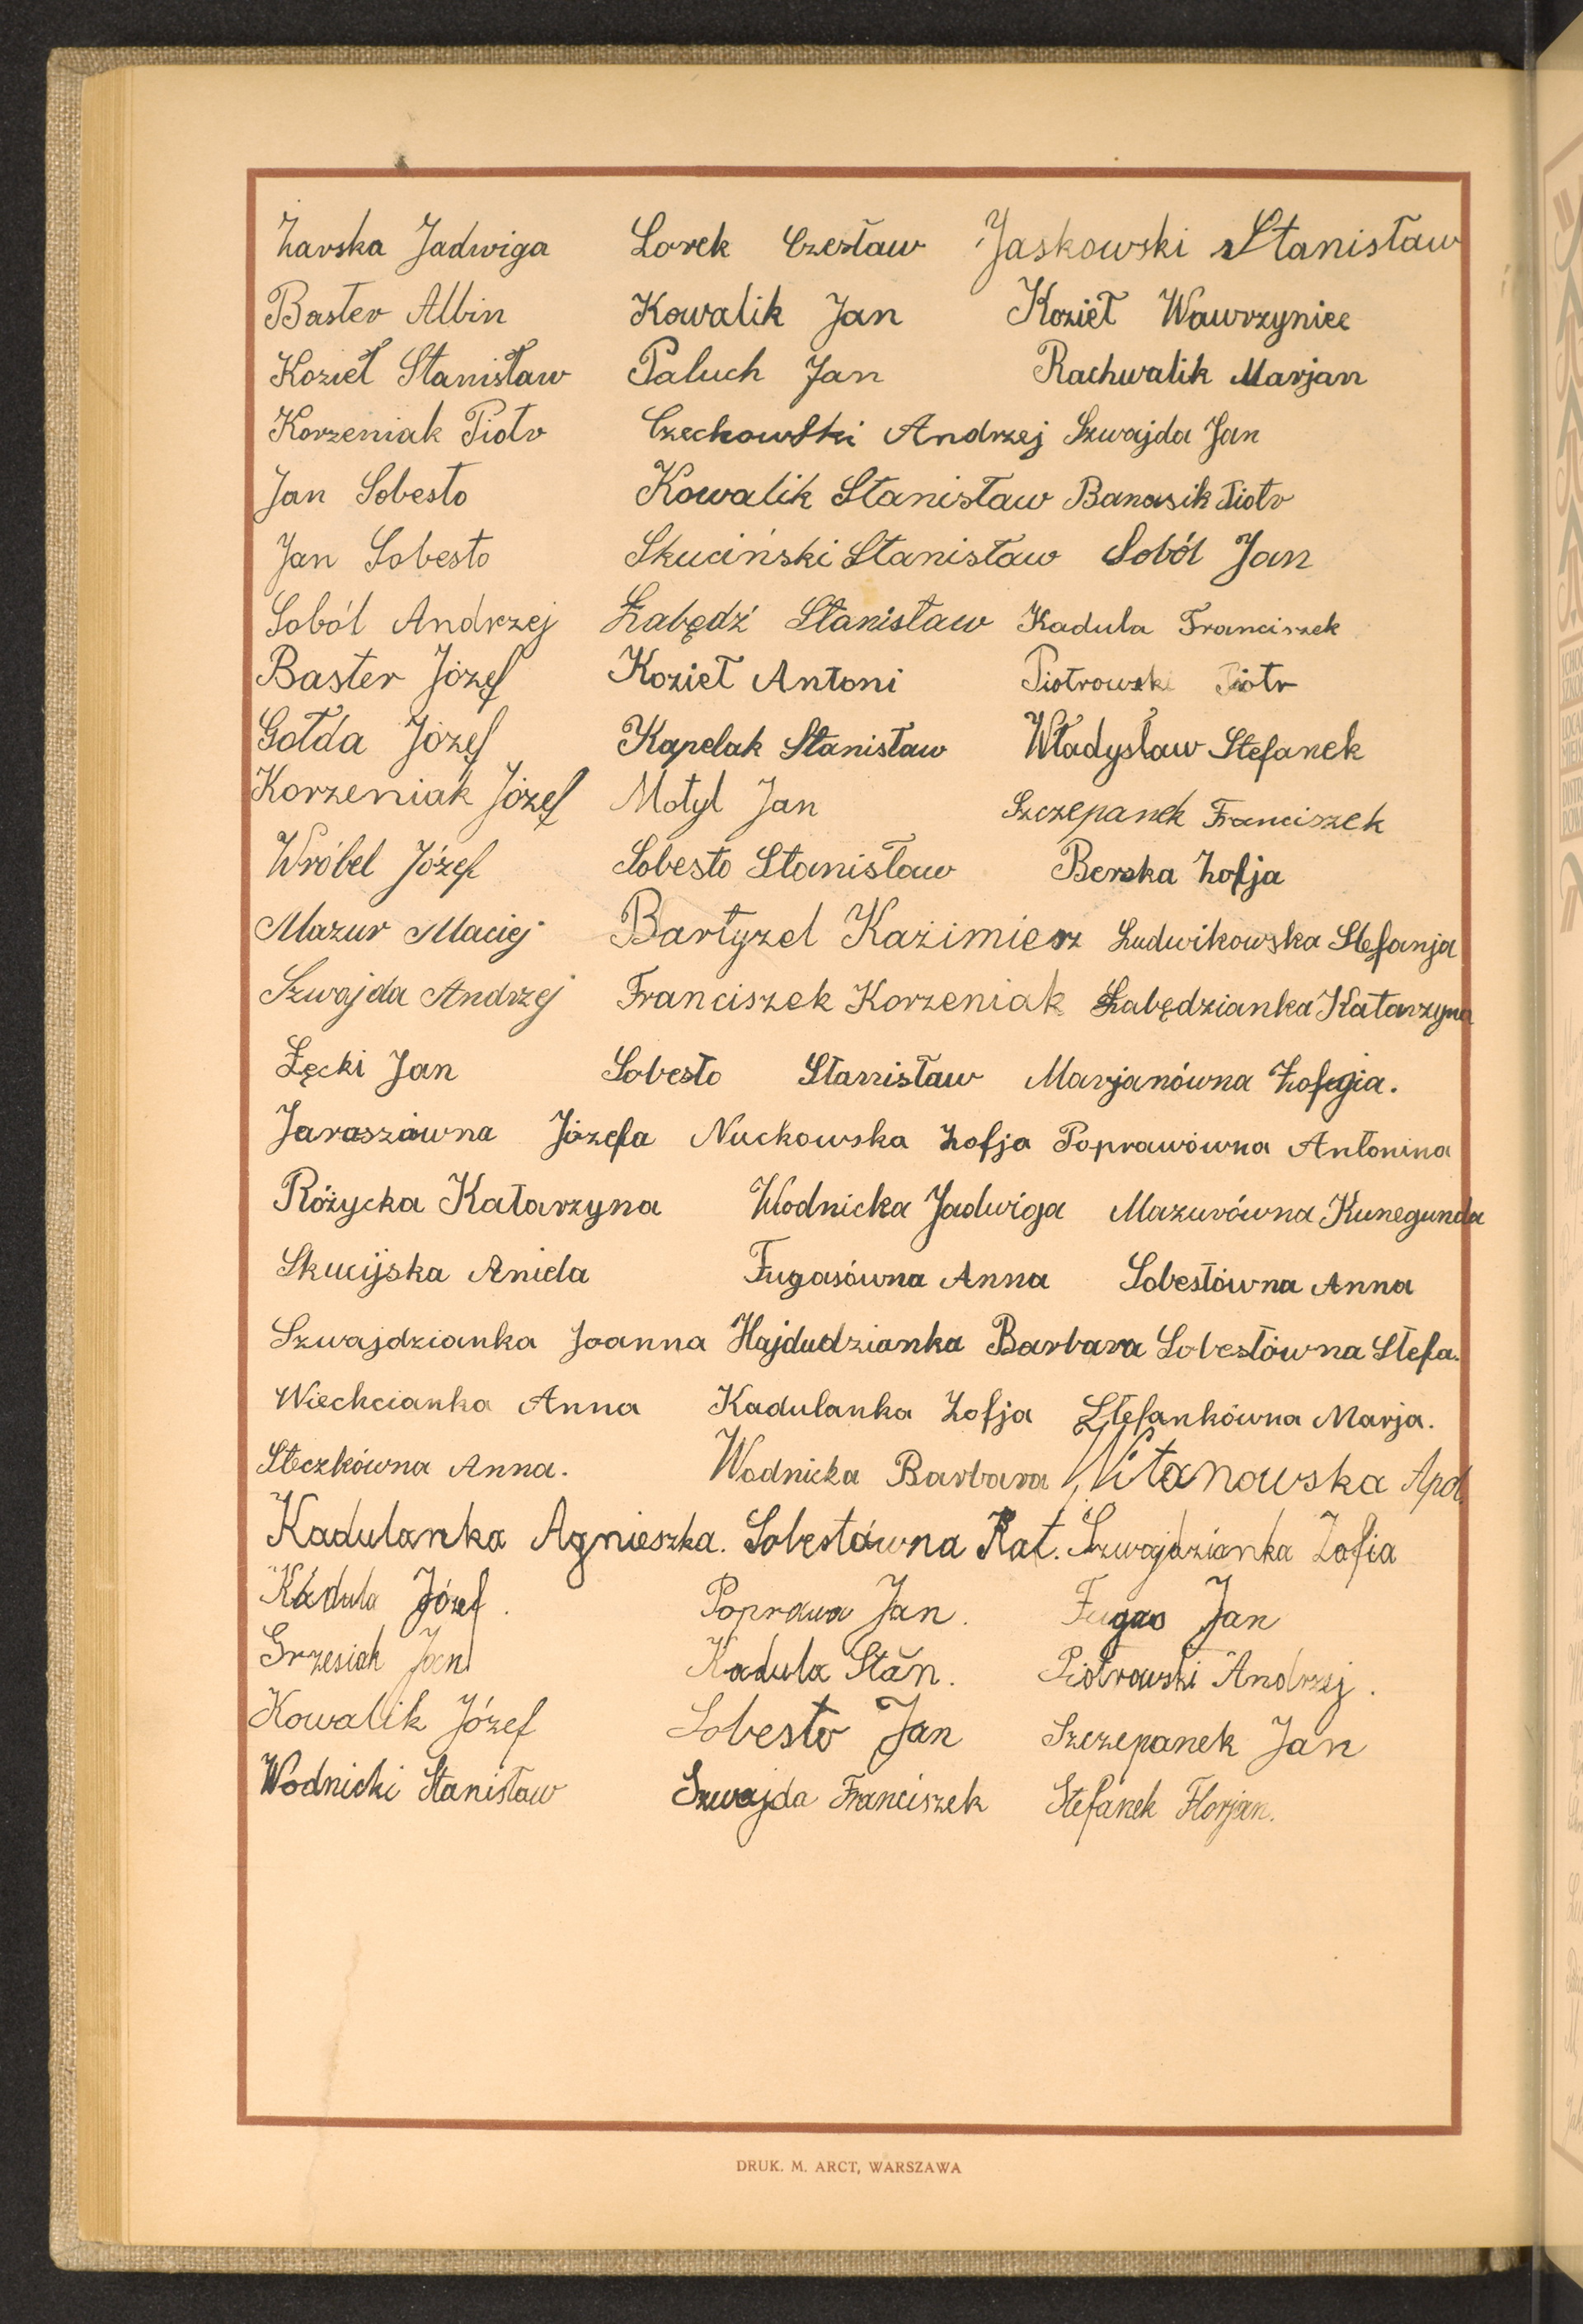 Żarska Jadwiga Lorek Czesław Jaskowski Stanisław
Baster Albin Kowalik Jan Kozieł Wawrzyniec
Kozieł Stanisław Paluch Jan Rachwalik Marjan
Korzeniak Piotr Czechowski Andrzej Szwajda Jan
Jan Sobesto Kowalik Stanisław Banasik Piotr
Jan Sobesto Skuciński Stanisław Soból Jan
Soból Andrzej Łabędź Stanisław Kadula Franciszek
Baster Józef Kozieł Antoni Piotrowski Piotr
Gołda Józef Kapelak Stanisław Władysław Stefanek
Korzeniak Józef Motyl Jan Szczepanek Franciszek
Wróbel Józef Sobesto Stanisław Berska Zofja
Mazur Maciej Bartyzel Kazimierz Ludwikowska Stefanja
Szwajda Andrzej Franciszek Korzeniak Łabędzianka Katarzyna
Łęcki Jan Sobesto Stanisław Marjanówna Zofja.
Jaraszówna Józefa Nuckowska Zofja Poprawówna Antonina
Różycka Katarzyna Wodnicka Jadwiga Mazurówna Kunegunda
Skucijska Aniela Fugasówna Anna Sobestówna Anna
Szwajdzianka Joanna Hajdudzianka Barbara Sobestówna Stefa.
Wiechcianka Anna Kadulanka Zofja Stefankówna Marja.
Steczkówna Anna. Wodnicka Barbara Witanowska Apol.
Kadulanka Agnieszka. Sobestówna Kat. Szwajdzianka Zofia
Kadula Józef. Poprawa Jan. Fugas Jan
Grzesiak Jan Kadula Stan. Piotrowski Andrzej.
Kowalik Józef Sobesto Jan Szczepanek Jan
Wodnicki Stanisław Szwajda Franciszek Stefanek Florjan.
DRUK. M. ARCT, WARSZAWA